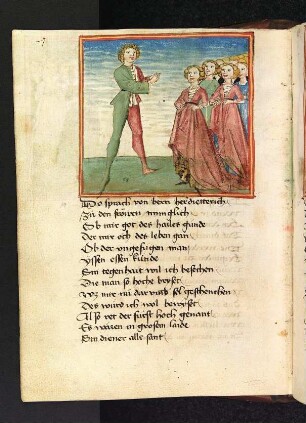 Do sprach von bern her dietterich
Zu den froͤwen minnglich
Ob mir got des hailes gunde
Der mir och des leben gan
Ob der ungefugen man
yssen essen kunde
Ein tegenhait wil ich besechen
Die man so hoche bryset
mir nu dar umb sol geschenchen
Des wurd ich wol bewyset
Also ret der furst hoch genant
Es waren in grosem laide
Ein diener alle sant